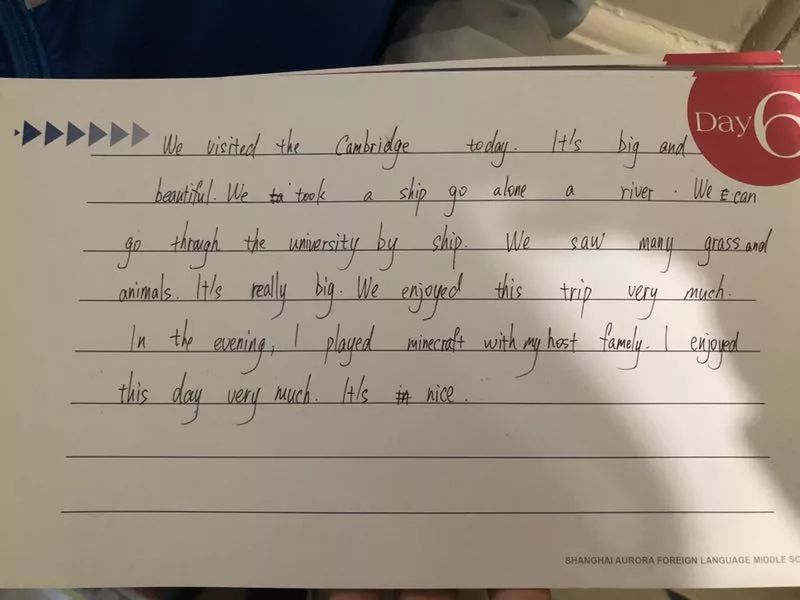 Day 6
We visited the Cambridge today. It's big and
beautiful. We took a ship go alone a river. We can
go through the university by ship. We saw many grass and
animals. It's really big. We enjoyed this trip very much.
In the evening, I played minecraft with my host famely. I enjoyed
this day very much. It's nice.
SHANGHAI AURORA FOREIGN LANGUAGE MIDDLE SC